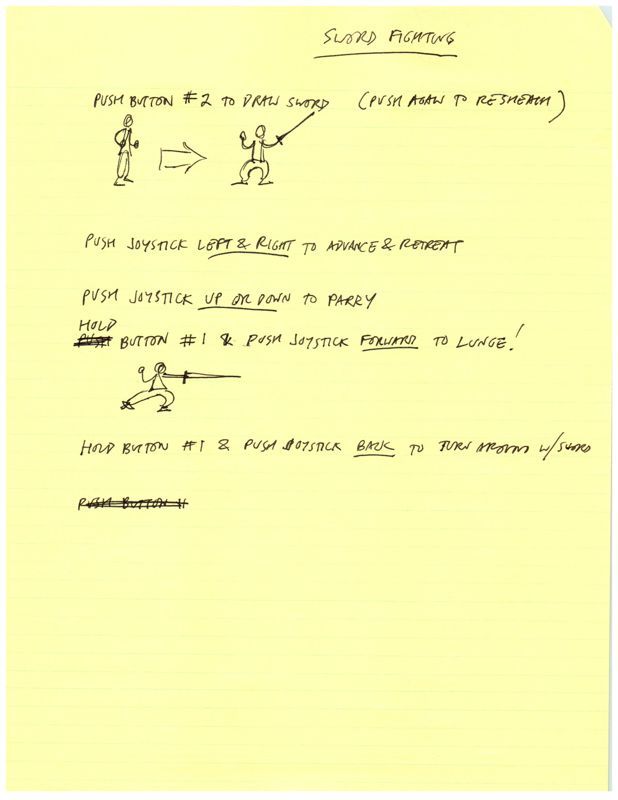 SWORD FIGHTING
PUSH BUTTON #2 TO DRAW SWORD (PUSH AGAIN TO RESHEATH)
PUSH JOYSTICK LEFT & RIGHT TO ADVANCE & RETREAT
PUSH JOYSTICK UP OR DOWN TO PARRY
HOLD
PUSH BUTTON #1 & PUSH JOYSTICK FORWARD TO LUNGE!
HOLD BUTTON #1 & PUSH JOYSTICK BACK TO TURN AROUND W/SWORD
PUSH BUTTON #